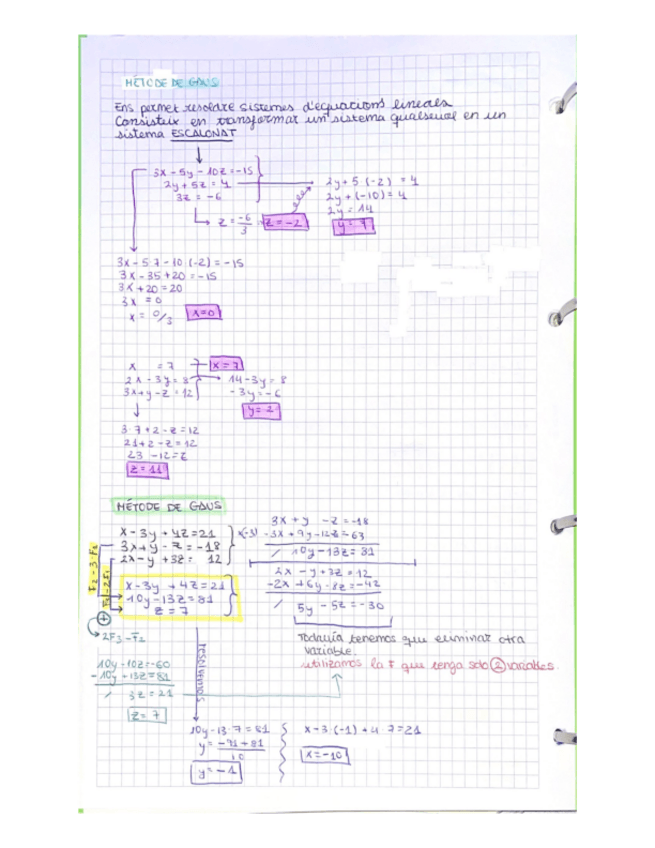 MÉTODE DE GAUS
Ens permet resoldre sistemes d'equations lineals
Consisteix en transformar un sistema qualsevol en un
sistema ESCALONAT
3x - 5y - 10z = -15
2y + 5z = 4
3z = -6
z = -6/3
z = -2
2y + 5·(-2) = 4
2y + (-10) = 4
2y = 14
y = 7
3x - 5·7 - 10·(-2) = -15
3x - 35 + 20 = -15
3x + 20 = 20
3x = 0
x = 0/3
x = 0
x = 7
x = 7
2x - 3y = 8
3x + y - z = 12
14 - 3y = 8
-3y = -6
y = 2
3·7 + 2 - z = 12
21 + 2 - z = 12
23 - 12 = z
z = 11
MÉTODE DE GAUS
x - 3y + 4z = 21
3x + y - z = -18
2x - y + 3z = 12
F2 - 3·F1
F3 - 2F1
x - 3y + 4z = 21
10y - 13z = 81
z = 7
x(-3)
3x + y - z = -18
-3x + 9y - 12z = -63
/ 10y - 13z = 81
2x - y + 3z = 12
-2x + 6y - 8z = -42
/ 5y - 5z = -30
2F3 - F2
Todavía tenemos que eliminar otra
variable.
utilizamos la F que tenga solo 2 variables.
10y - 10z = -60
-10y + 13z = 81
/ 3z = 21
z = 7
resolvemos
10y - 13·7 = 81
y = -91 + 81
10
y = -1
x - 3·(-1) + 4·7 = 21
x = -10